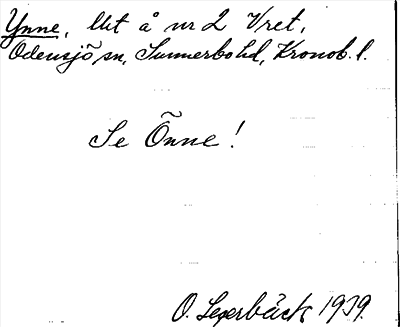 Ynne, Utt å nr 2 Vret,
Odensjö sn, Sunnerbo hd, Kronob. l.
Se Önne!
O. 1939.